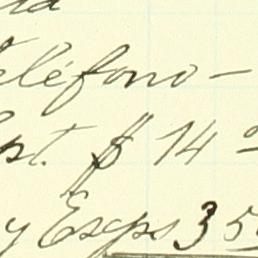 eléfono-
pt. $ 14
y Exps 35